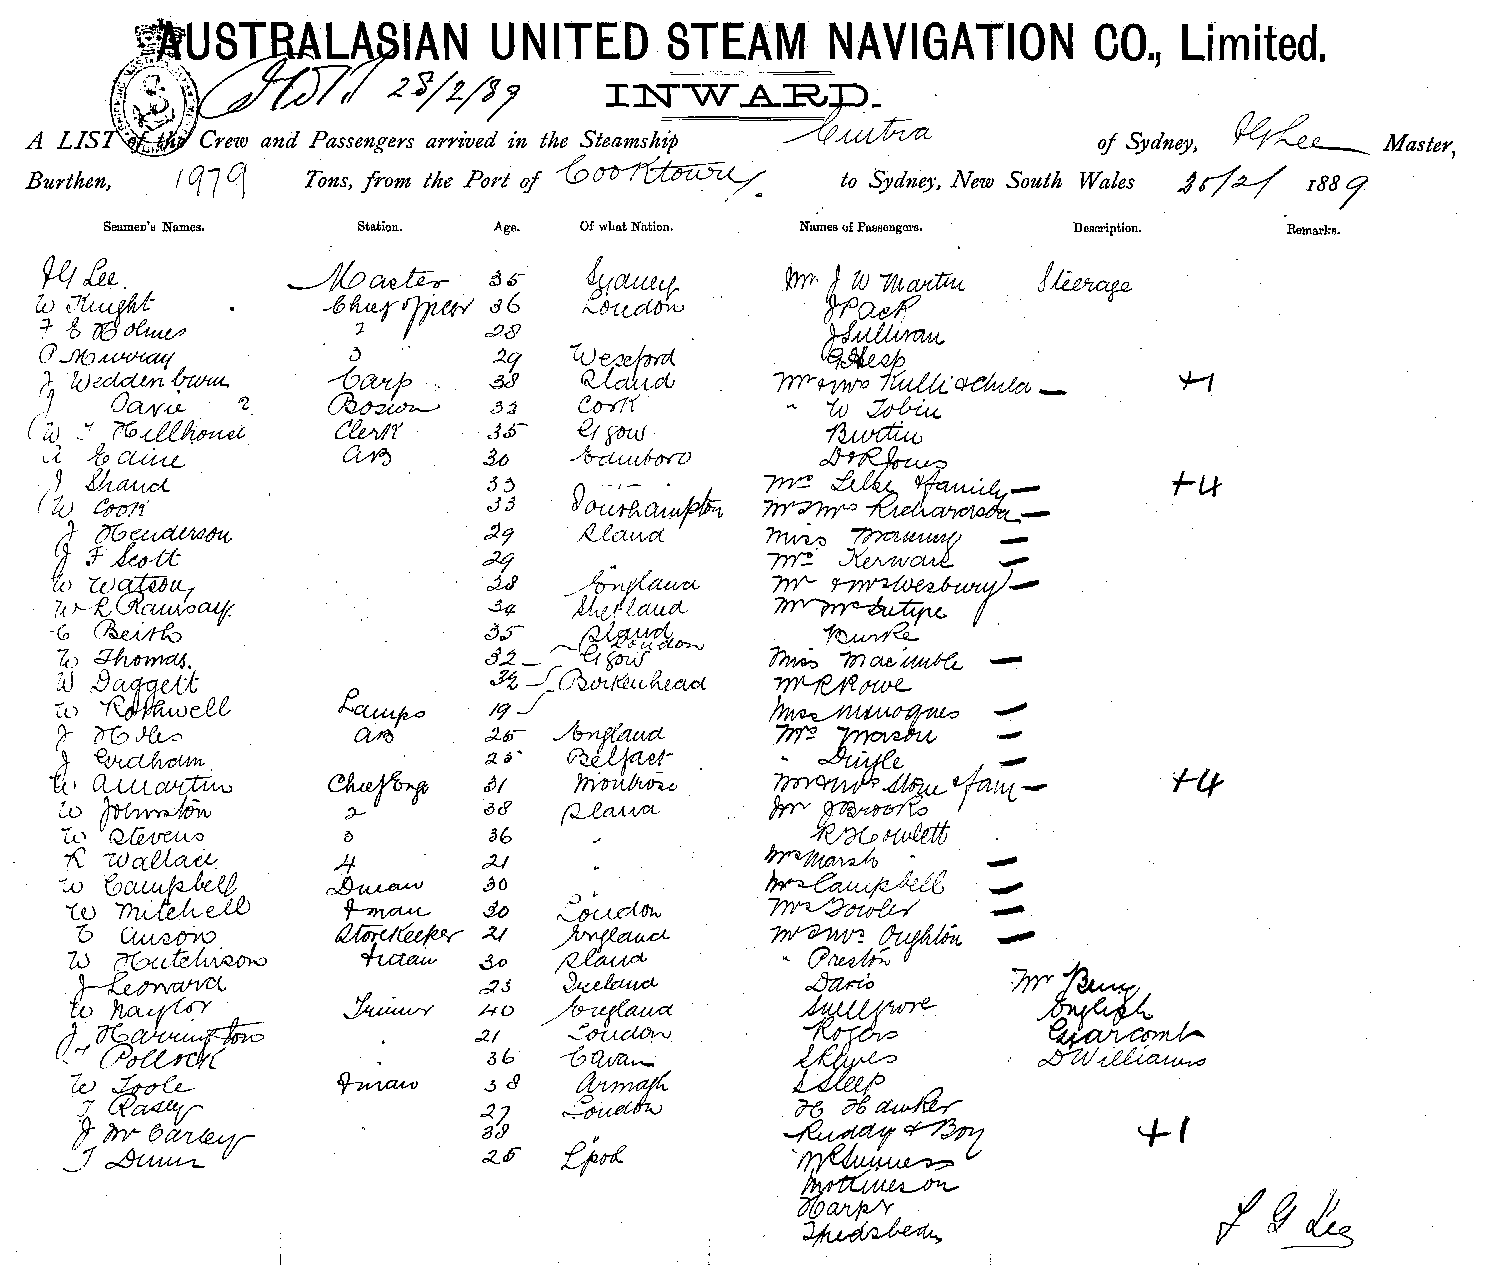 AUSTRALASIAN UNITED STEAM NAVIGATION CO., Limited.
28/2/89
INWARD.
A LIST of the Crew and Passengers arrived in the Steamship Cintra of Sydney, Lee Master,
Burthen, 1979 Tons, from the Port of Cooktown to Sydney, New South Wales 25/2/ 1889
Seamen's Names. Station. Age. Of what Nation. Names of Passengers. Description. Remarks.
Lee. Master 35 Sydney Mr J W Martin Steerage
W Knight Chief officer 36 London J Pack
F E Holmes 2 28 J Sullivan
P Murray 3 29 Wexford
J Weddenburn Carp 38 Sland Mr & Mrs & Child — +1
J Davie Bosun 33 Cork " W Tobin
(W T Hillhouse Clerk 35 Glgow Burtin
A Edine AB 30 Edinboro D & R Jones
J Shand 33 Mrs & family — +4
(W Cook 33 Southampton Mr & Mrs Richardson —
J Henderson 29 Sland Miss —
J F Scott 29 Mrs —
W Watson 28 England Mr & Mrs Wesbury —
W R Ramsay 34 Shetland Mr McIntype
C Beith 35 Sland Burke
London
W Thomas. 32 Glgow Miss —
W Daggett 32 Birkenhead Mr R Rowe
W Rothwell Lamps 19 Miss Monogues —
J Holes AB 25 England Mrs Mason —
J 25 Belfast " Dingle —
W A Martin Chief Eng 31 Montrose Mr & Mrs Stone & fam — +4
W Johnston 2 38 Sland Mr J Brooks
W Stevens 3 36 " R Howlett
R Wallace 4 21 " Mrs Marsh —
W Campbell Dman 30 " Mrs Campbell —
W Mitchell Fman 30 London Mrs Fowler —
E Anson Storekeeper 21 England Mr & Mrs Oughton —
W Hutchison Fman 30 Sland " Preston
J Leonard 23 Ireland Davis Mr
W Naylor Trimmer 40 England Snellgrove English
J Harrington 21 London Rogers
Pollock 36 Cavan D Williams
W Toole Fman 38 Armagh S Sleep
T Rasey 27 London H Hawker
J McCarley 38 Ruddy & Boy +1
T Dunn 25 Lpool McGuiness
Harper
Lee